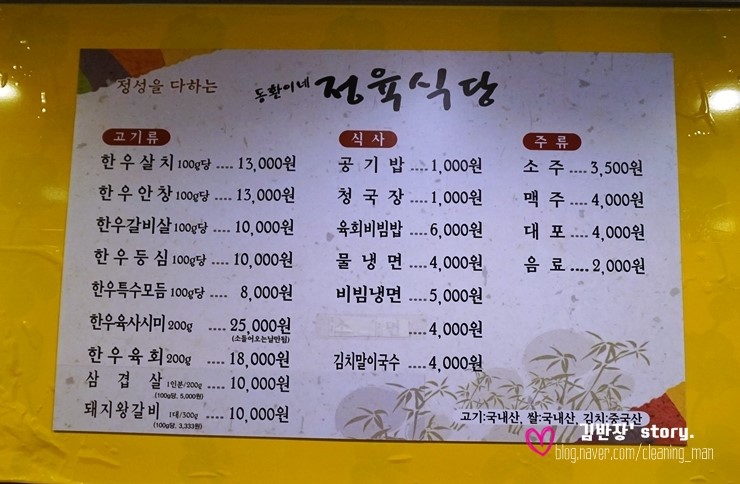 정성을 다하는
동환이네 정육식당
고기류
한우살치 100g당 .... 13,000원
한우안창 100g당 .... 13,000원
한우갈비살 100g당 .... 10,000원
한우등심 100g당 .... 10,000원
한우특수모듬 100g당 .... 8,000원
한우육사시미 200g .... 25,000원
(소들어오는날만됨)
한우육회 200g .... 18,000원
삼겹살 1인분/200g .... 10,000원
(100g당, 5,000원)
돼지왕갈비 1대/300g .... 10,000원
(100g당, 3,333원)
식사
공기밥 .... 1,000원
청국장 .... 1,000원
육회비빔밥 .... 6,000원
물냉면 .... 4,000원
비빔냉면 .... 5,000원
.... 4,000원
김치말이국수 .... 4,000원
주류
소주 .... 3,500원
맥주 .... 4,000원
대포 .... 4,000원
음료 .... 2,000원
고기:국내산, 쌀:국내산, 김치:중국산
김반장' story.
blog.naver.com/cleaning_man